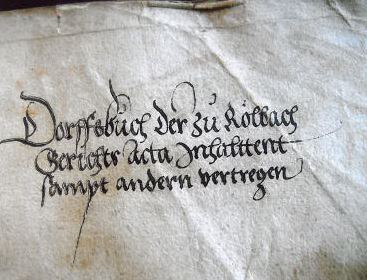 Dorffsbuch der zu Rölbach
Gerichts acta Inhalttent
sampt andern vertregen